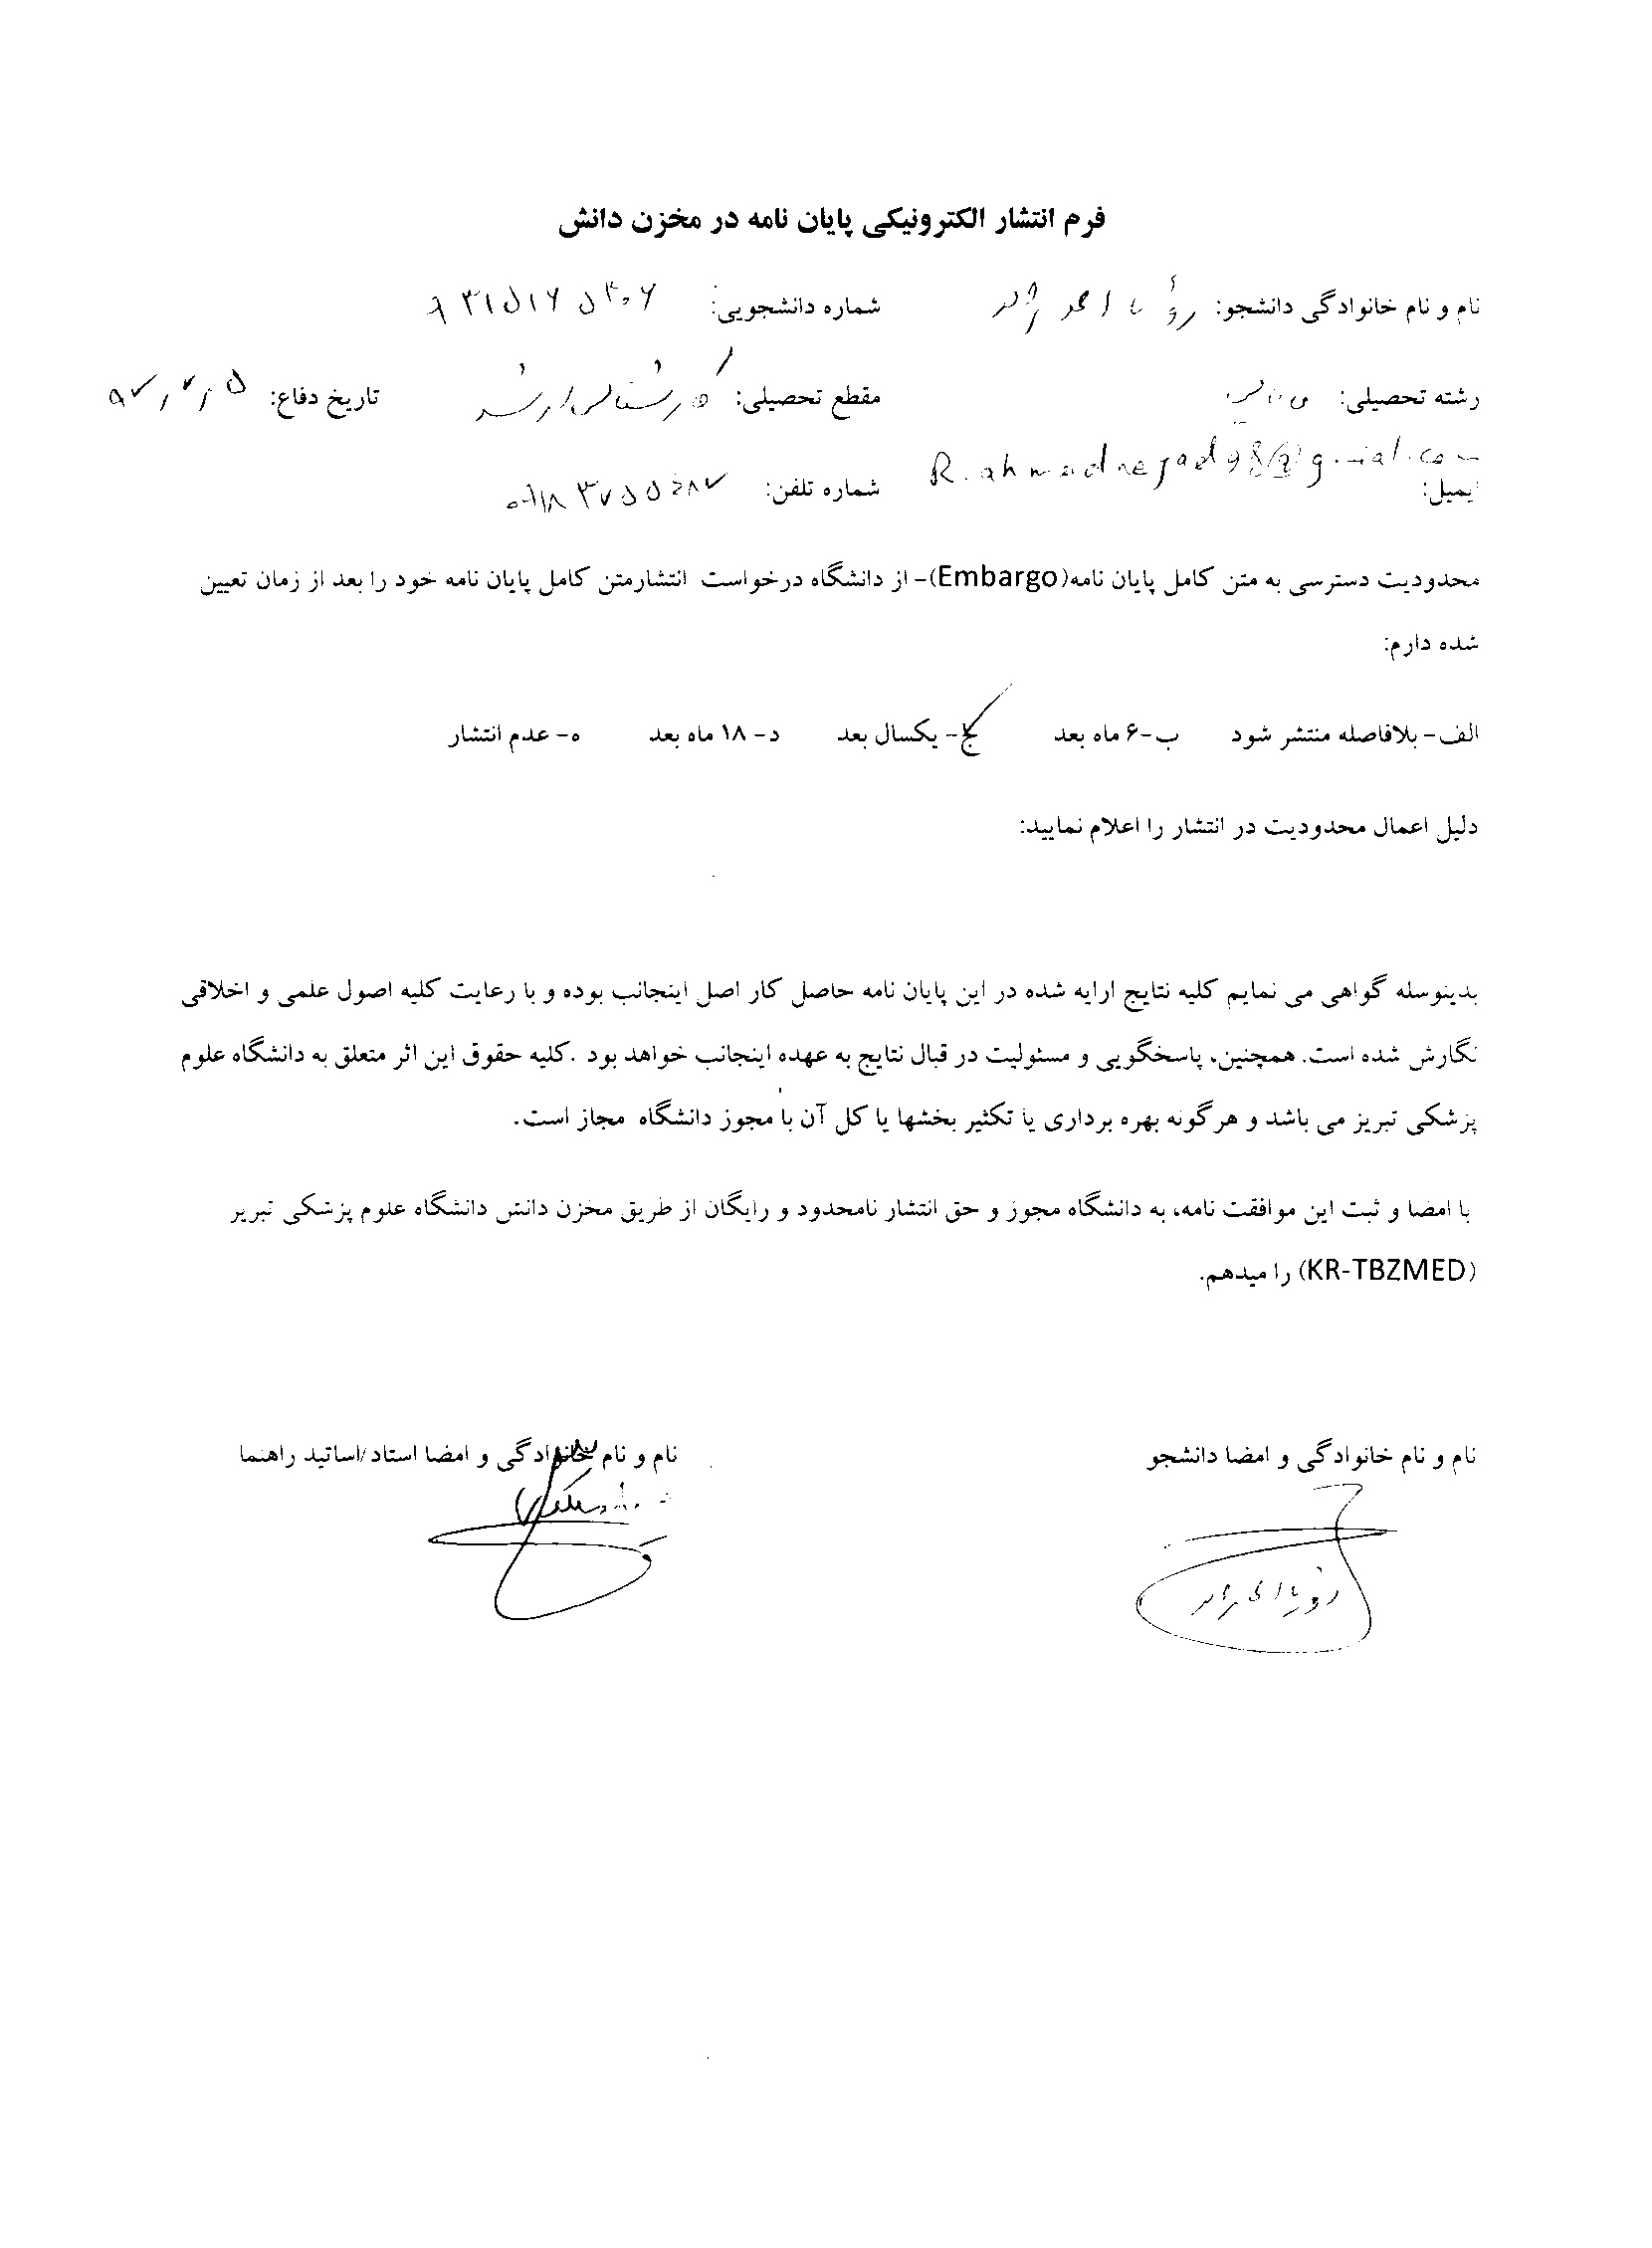 فرم انتشار الکترونیکی پایان نامه در مخزن دانش
نام و نام خانوادگی دانشجو: رؤیا احمدنژاد شماره دانشجویی:
رشته تحصیلی: مقطع تحصیلی: کارشناسی ارشد تاریخ دفاع: ۹۷,۷,۵
ایمیل: R.ahmadnejad98@gmail.com شماره تلفن:
محدودیت دسترسی به متن کامل پایان نامه(Embargo)- از دانشگاه درخواست انتشارمتن کامل پایان نامه خود را بعد از زمان تعیین
شده دارم:
الف- بلافاصله منتشر شود ب-۶ ماه بعد ج- یکسال بعد د- ۱۸ ماه بعد ه- عدم انتشار
دلیل اعمال محدودیت در انتشار را اعلام نمایید:
بدینوسله گواهی می نمایم کلیه نتایج ارایه شده در این پایان نامه حاصل کار اصل اینجانب بوده و با رعایت کلیه اصول علمی و اخلاقی
نگارش شده است. همچنین، پاسخگویی و مسئولیت در قبال نتایج به عهده اینجانب خواهد بود .کلیه حقوق این اثر متعلق به دانشگاه علوم
پزشکی تبریز می باشد و هرگونه بهره برداری یا تکثیر بخشها یا کل آن با مجوز دانشگاه مجاز است.
با امضا و ثبت این موافقت نامه، به دانشگاه مجوز و حق انتشار نامحدود و رایگان از طریق مخزن دانش دانشگاه علوم پزشکی تبریز
(KR-TBZMED) را میدهم.
نام و نام خانوادگی و امضا دانشجو نام و نام خانوادگی و امضا استاد/اساتید راهنما
رؤیا احمدنژاد